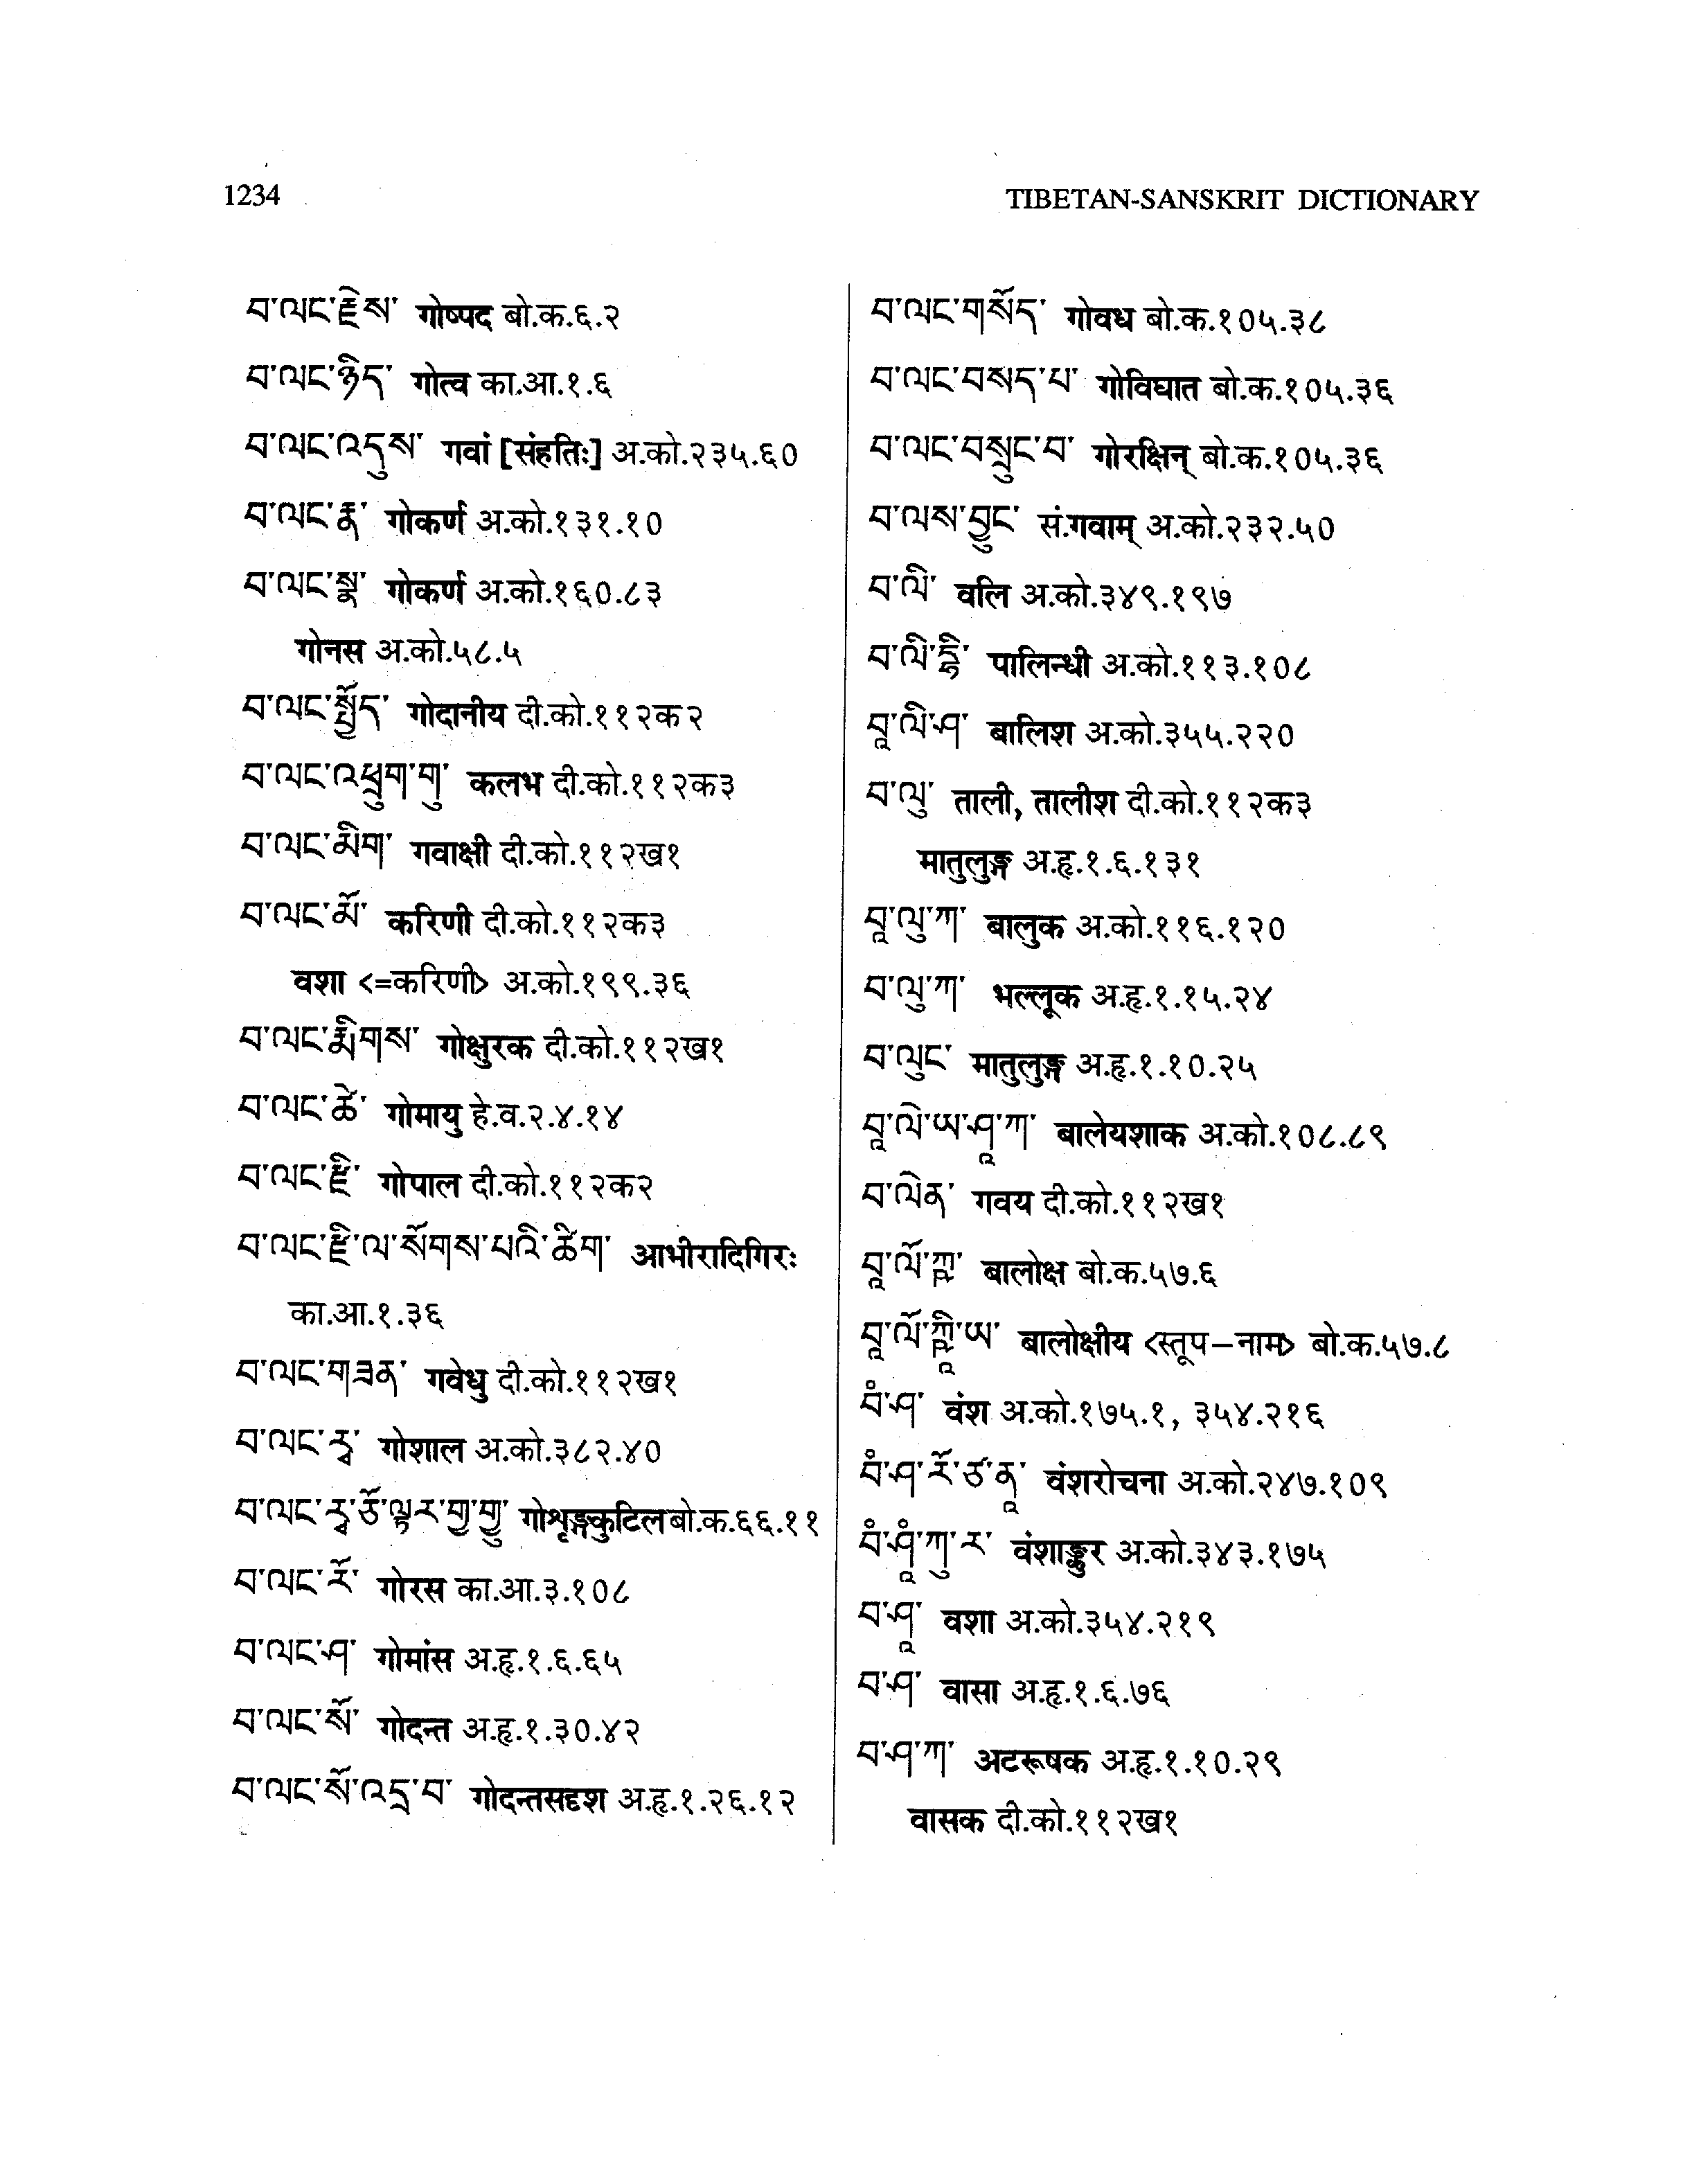 1234
TIBETAN-SANSKRIT DICTIONARY
བ་ལང་རྗེས་ गोष्पद बो.क.६.२
བ་ལང་ཉིད་ गोत्व का.आ.१.६
བ་ལང་འདུས་ गवां [संहतिः] अ.को.२३५.६०
བ་ལང་རྣ་ गोकर्ण अ.को.१३१.१०
བ་ལང་སྣ་ गोकर्ण अ.को.१६०.८३
गोनस अ.को.५८.५
བ་ལང་སྤྱོད་ गोदानीय दी.को.११२क२
བ་ལང་འཕྲུག་གུ་ कलभ दी.को.११२क३
བ་ལང་མིག་ गवाक्षी दी.को.११२ख१
བ་ལང་མོ་ करिणी दी.को.११२क३
वशा <=करिणी> अ.को.१९९.३६
བ་ལང་རྨིགས་ गोक्षुरक दी.को.११२ख१
བ་ལང་ཚེ་ गोमायु हे.व.२.४.१४
བ་ལང་རྫི་ गोपाल दी.को.११२क२
བ་ལང་རྫི་ལ་སོགས་པའི་ཚིག་ आभीरादिगिरः
का.आ.१.३६
བ་ལང་གཟན་ गवेधु दी.को.११२ख१
བ་ལང་རྭ་ गोशाल अ.को.३८२.४०
བ་ལང་རྭ་ཅོ་ལྟར་གྱ་གྱུ་ गोशृङ्गकुटिल बो.क.६६.११
བ་ལང་རོ་ गोरस का.आ.३.१०८
བ་ལང་ཤ་ गोमांस अ.हृ.१.६.६५
བ་ལང་སོ་ गोदन्त अ.हृ.१.३०.४२
བ་ལང་སོ་འདྲ་བ་ गोदन्तसदृश अ.हृ.१.२६.१२
བ་ལང་གསོད་ गोवध बो.क.१०५.३८
བ་ལང་བསད་པ་ गोविघात बो.क.१०५.३६
བ་ལང་བསྲུང་བ་ गोरक्षिन् बो.क.१०५.३६
བ་ལས་བྱུང་ सं.गवाम् अ.को.२३२.५०
བ་ལི་ वलि अ.को.३४९.१९७
བ་ལི་ནྡྷི་ पालिन्धी अ.को.११३.१०८
བཱ་ལི་ཤ་ बालिश अ.को.३५५.२२०
བ་ལུ་ ताली, तालीश दी.को.११२क३
मातुलुङ्ग अ.हृ.१.६.१३१
བཱ་ལུ་ཀ་ बालुक अ.को.११६.१२०
བ་ལུ་ཀ་ भल्लूक अ.हृ.१.१५.२४
བ་ལུང་ मातुलुङ्ग अ.हृ.१.१०.२५
བཱ་ལེ་ཡ་ཤཱ་ཀ་ बालेयशाक अ.को.१०८.८९
བ་ལེན་ गवय दी.को.११२ख१
བཱ་ལོ་ཀྵ་ बालोक्ष बो.क.५७.६
བཱ་ལོ་ཀྵཱི་ཡ་ बालोक्षीय <स्तूप–नाम> बो.क.५७.८
བཾ་ཤ་ वंश अ.को.१७५.१, ३५४.२१६
བཾ་ཤ་རོ་ཙ་ནཱ་ वंशरोचना अ.को.२४७.१०९
བཾ་ཤཱཾ་ཀུ་ར་ वंशाङ्कुर अ.को.३४३.१७५
བ་ཤཱ་ वशा अ.को.३५४.२१९
བ་ཤ་ वासा अ.हृ.१.६.७६
བ་ཤ་ཀ་ अटरूषक अ.हृ.१.१०.२९
वासक दी.को.११२ख१